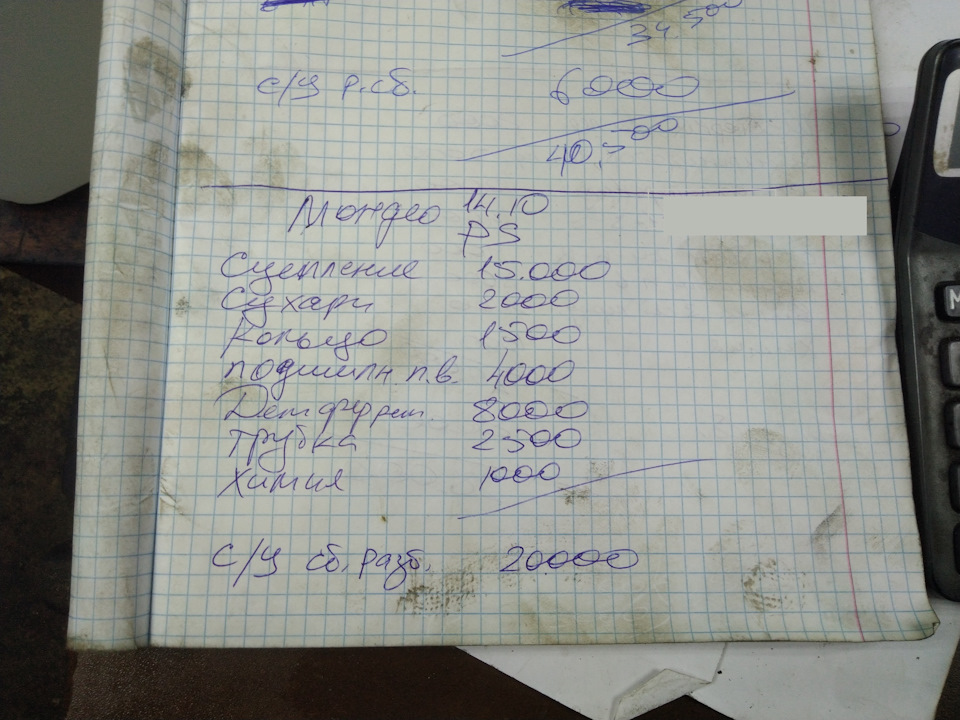 34.500
с/у р.сб. 6000
40.500
Мондео 14.10
PS
Сцепление 15.000
Сухари 2000
Кольцо 1500
подшипн. п.в. 4000
8000
трубка 2500
Химия 1000
с/у сб. разб. 20000